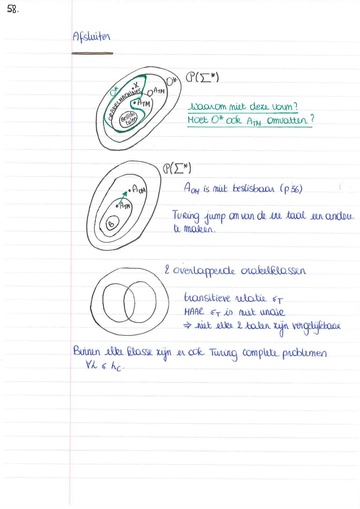 58.
Afsluiten
P(Σ*)
O*
ATM
Waarom niet deze vorm?
Moet O* ook ATM omvatten?
P(Σ*)
AOM
ATM
B
AOM is niet beslisbaar (p 56)
Turing jump om van de ene taal een andere
te maken.
2 overlappende orakelklassen
transitieve relatie ≤T
MAAR ≤T is niet unair
⇒ niet elke 2 talen zijn vergelijkbaar
Binnen elke klasse zijn er ook Turing complete problemen
∀L ≤ Lc.